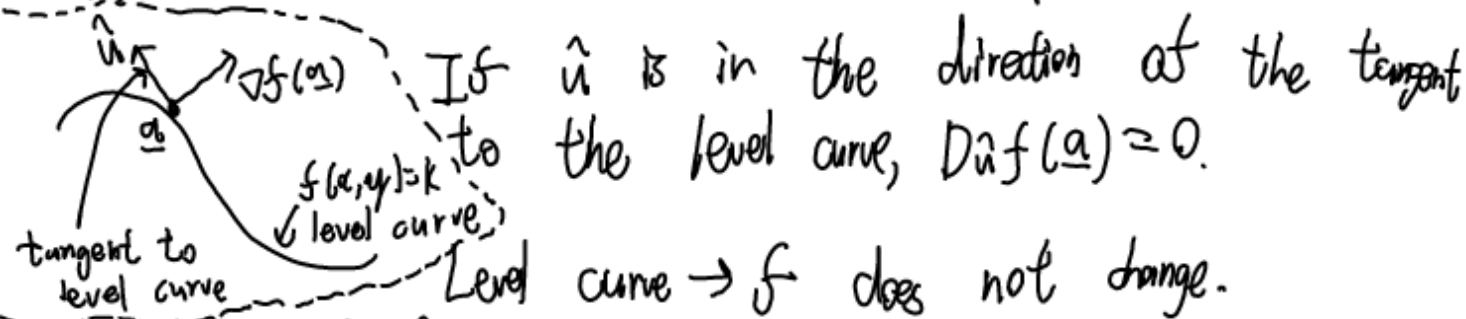 û
∇f(a)
a
f(x,y)=k
level curve
tangent to
level curve
If û is in the direction of the tangent
to the level curve, Dûf(a)=0.
Level curve → f does not change.